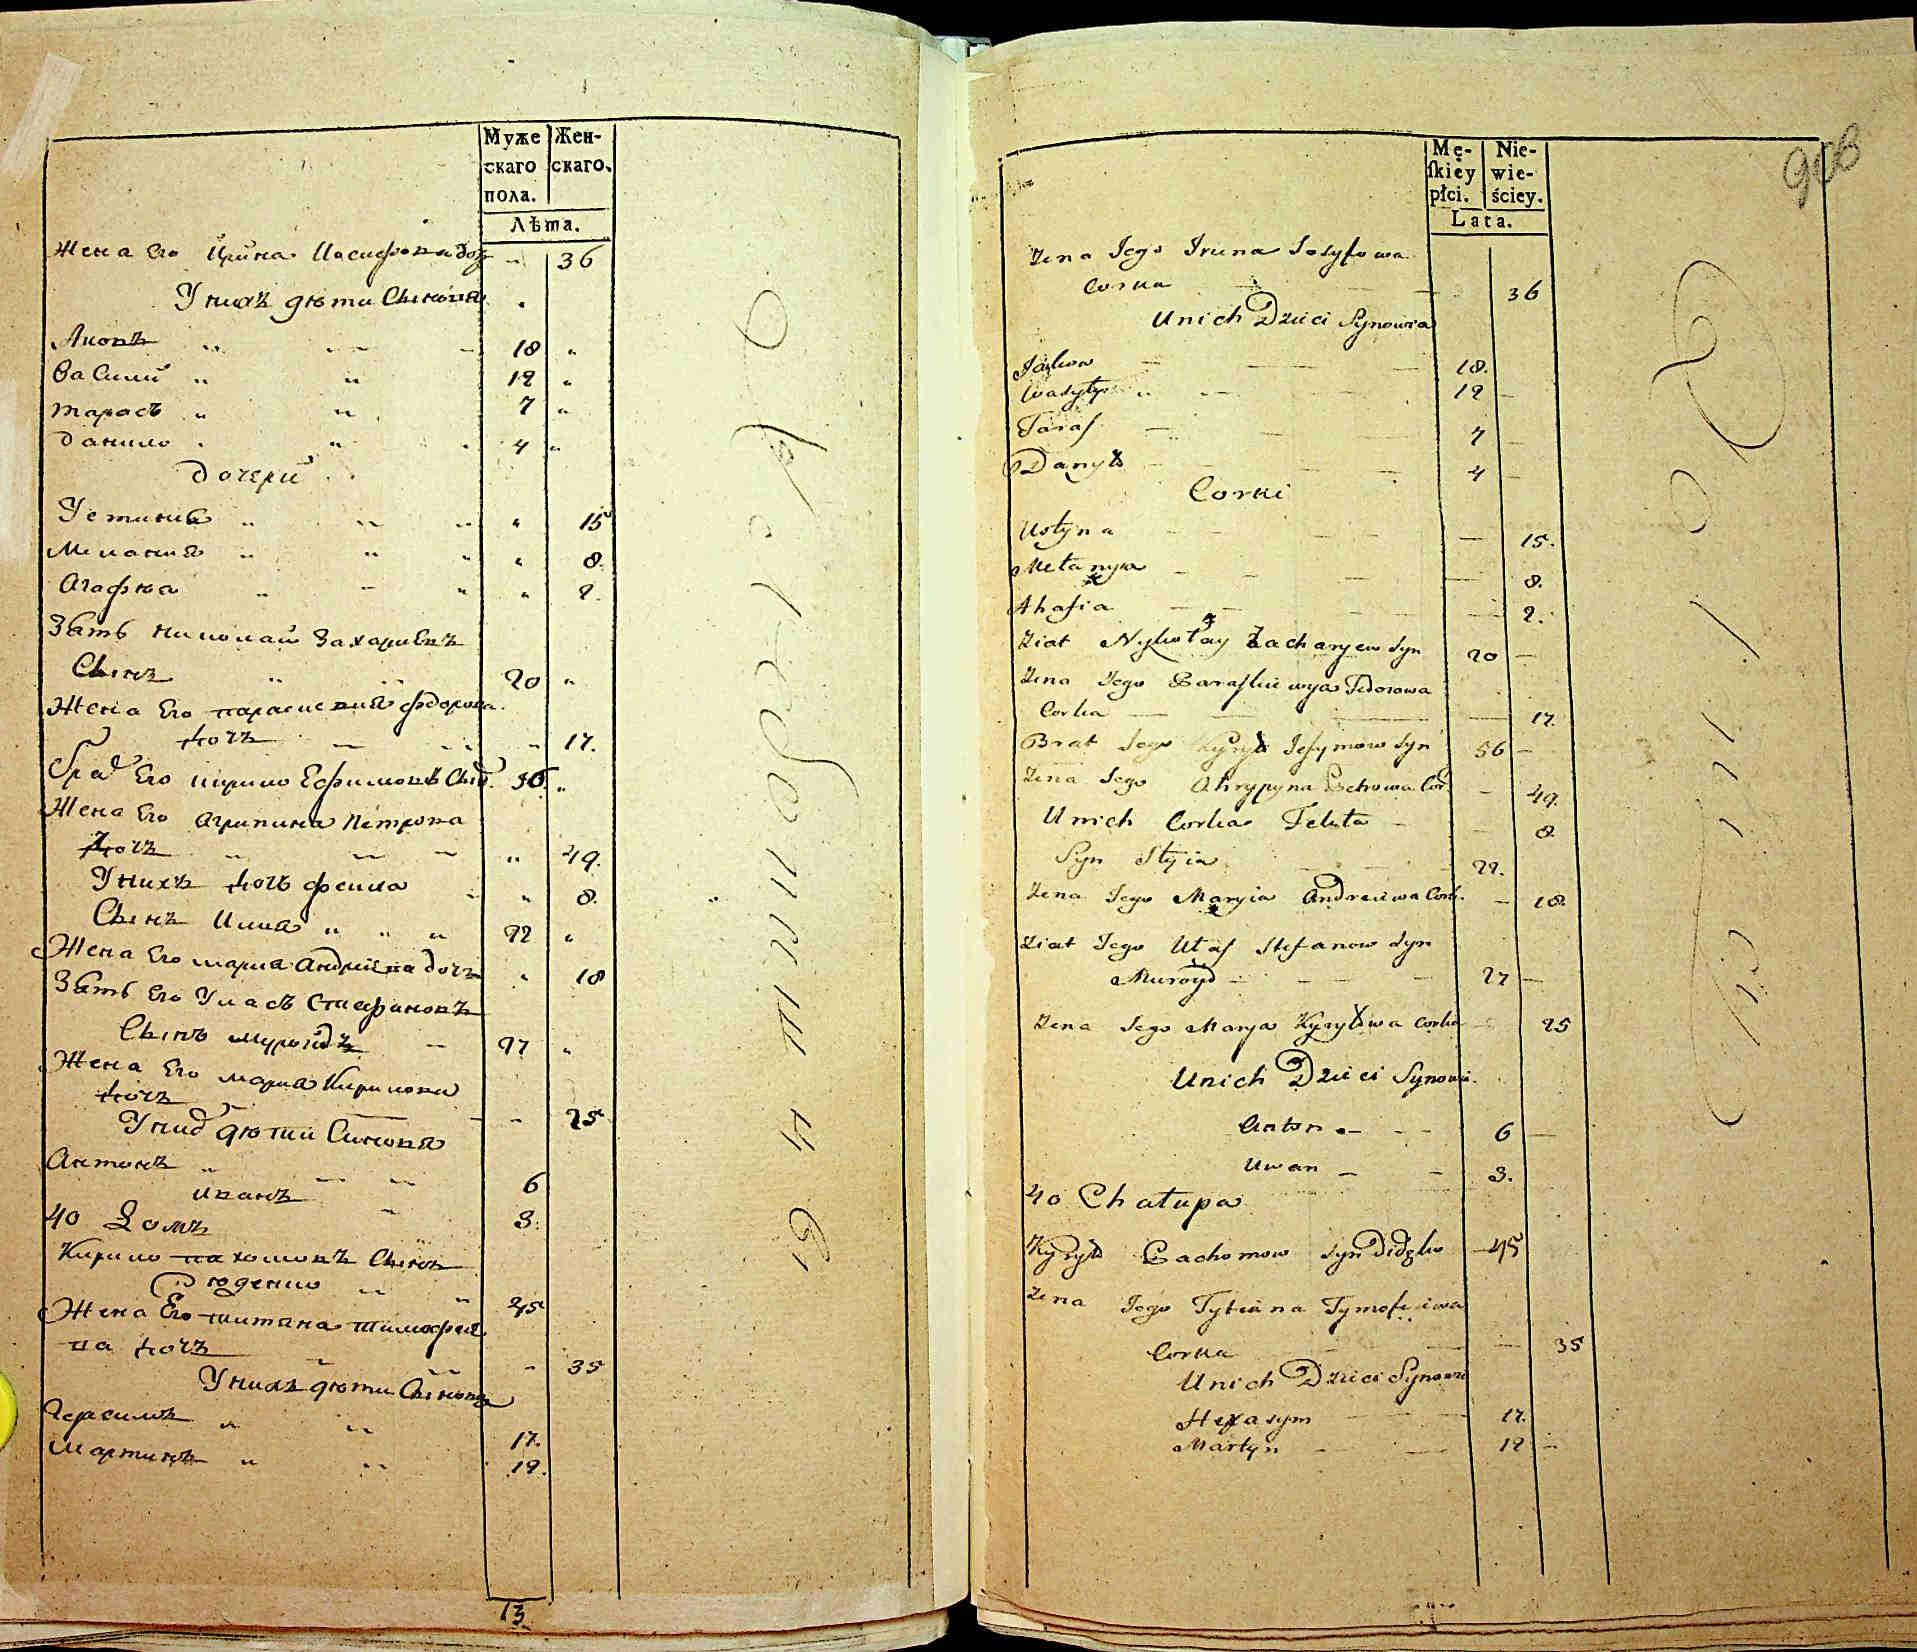 Муже
скаго
пола.
Жен-
скаго.
Лѣта.
Жена Его Ирина Иосифова доч - 36
У нихъ дѣти Сыновя
Яковъ 18
Василий 12
Тарасъ 7
Данило 4
Дочери
Устиния 15
Мелания 8.
Агафия 2.
Зять Николай Захариевъ
Сынъ 20
Жена Его параскевия федорова
дочь 17.
Брат Его кирило Ефимовъ Сын. 56
Жена Его Агрипина Петрова
Дочь 49.
У нихъ дочь фекла 8.
Сынъ Илия 22
Жена Его мария Андриева дочь 18
Зять Его Уласъ Стефановъ
Сынъ муройдъ 27
Жена Его мария Кирилова
дочь 25
У них дѣти Синовя
Антонъ 6
иванъ 3.
40 Домъ
Кирило пахомовъ Сынъ
45
Жена Его титяна тимофее
ва дочь 35
У нихъ дѣти Сыновя
Герасимъ 17.
Мартинъ 12.
13
Mę-
ſkiey
płci.
Nie-
wie-
ściey.
Lata.
906
Zena Jego Iruna Josyfowa
Corka 36
Unich Dzieci Synowia
Jakow 18.
Wasylyi 12
Taras 7
Danyło 4
Corki
Ustyna 15.
Mełanya 8.
Ahafia 2.
Ziat Nykołay Zacharyew Syn 20
Zena Jego Paraskiewya Fedorowa
Corka 17.
Brat Jego Kyryło Jefymow Syn 56
Zena Jego Ahrypyna Petrowa Cor 49.
Unich Corka Fekła 8
Syn Illyia 22.
Zena Jego Maryia Andreiewa Cork. 18.
Ziat Jego Ułas Stefanow Syn
Muroyd 27
Zena Jego Marya Kyryłowa Corka 25
Unich Dzieci Synowi.
Anton 6
Uwan 3.
40 Chałupa
Kyryło Pachomow Syn Didęko 45
Zena Jego Tytiana Tymofeiewa
Corka 35
Unich Dzieci Synowi
Herasym 17.
Martyn 12